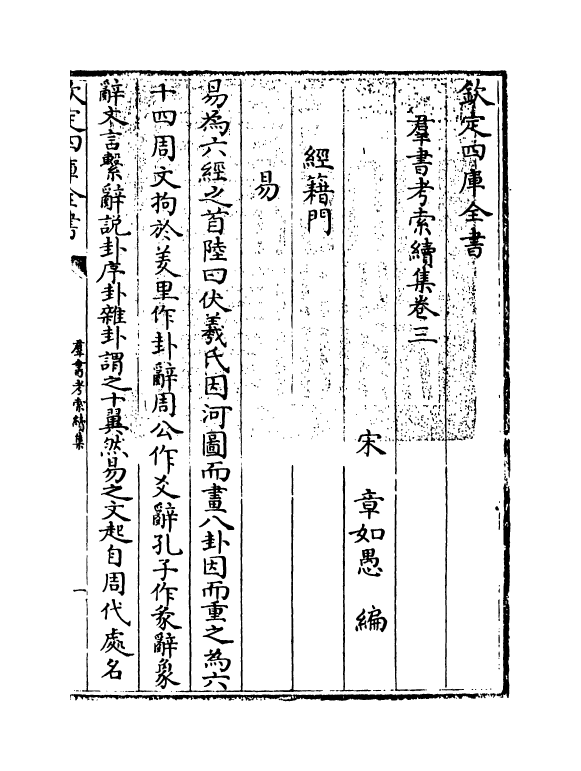 欽定四庫全書
羣書考索續集卷三
宋 章如愚 編
經籍門
易
易為六經之首陸曰伏羲氏因河圖而畫八卦因而重之為六
十四周文拘於羑里作卦辭周公作爻辭孔子作彖辭象
辭文言繫辭說卦序卦雜卦謂之十翼然易之文起自周代處名
欽定四庫全書
羣書考索續集
一